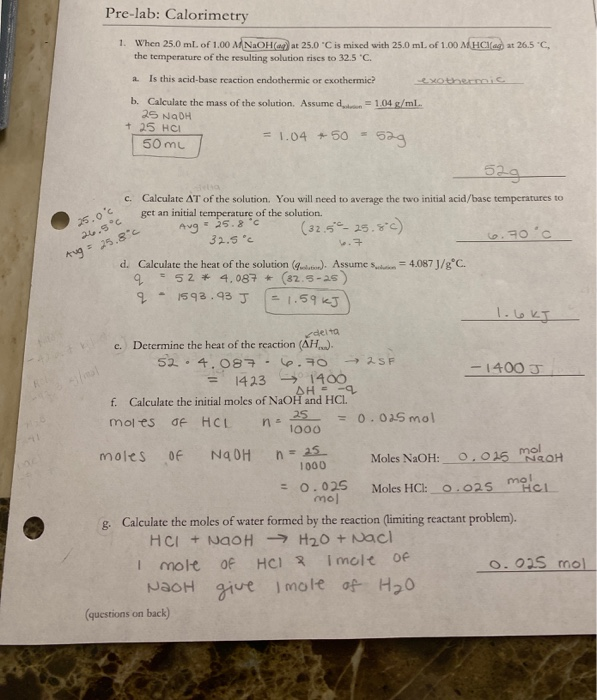 Pre-lab: Calorimetry
1. When 25.0 mL of 1.00 M NaOH(aq) at 25.0 °C is mixed with 25.0 mL of 1.00 M HCl(aq) at 26.5 °C,
the temperature of the resulting solution rises to 32.5 °C.
a. Is this acid-base reaction endothermic or exothermic?
exothermic
b. Calculate the mass of the solution. Assume d_solution = 1.04 g/mL.
25 NaOH
+ 25 HCl
50 mL
= 1.04 * 50 = 52g
52g
c. Calculate ΔT of the solution. You will need to average the two initial acid/base temperatures to
get an initial temperature of the solution.
25.0°C
26.5°C
Avg = 25.8°C
Avg = 25.8°C
32.5°C
(32.5°C - 25.8°C)
6.7
6.70°C
d. Calculate the heat of the solution (q_solution). Assume s_solution = 4.087 J/g°C.
q = 52 * 4.087 * (32.5-25)
q = 1593.93 J = 1.59 KJ
1.6 KJ
delta
e. Determine the heat of the reaction (ΔH_rxn).
52 · 4.087 · 6.70 → 2SF
= 1423 → 1400
ΔH = -q
-1400 J
f. Calculate the initial moles of NaOH and HCl.
moles of HCl n = 25/1000 = 0.025 mol
moles of NaOH n = 25/1000
= 0.025 mol
Moles NaOH: 0.025 mol NaOH
Moles HCl: 0.025 mol HCl
g. Calculate the moles of water formed by the reaction (limiting reactant problem).
HCl + NaOH → H2O + Nacl
1 mole of HCl & 1 mole of
NaOH give 1 mole of H2O
0.025 mol
(questions on back)